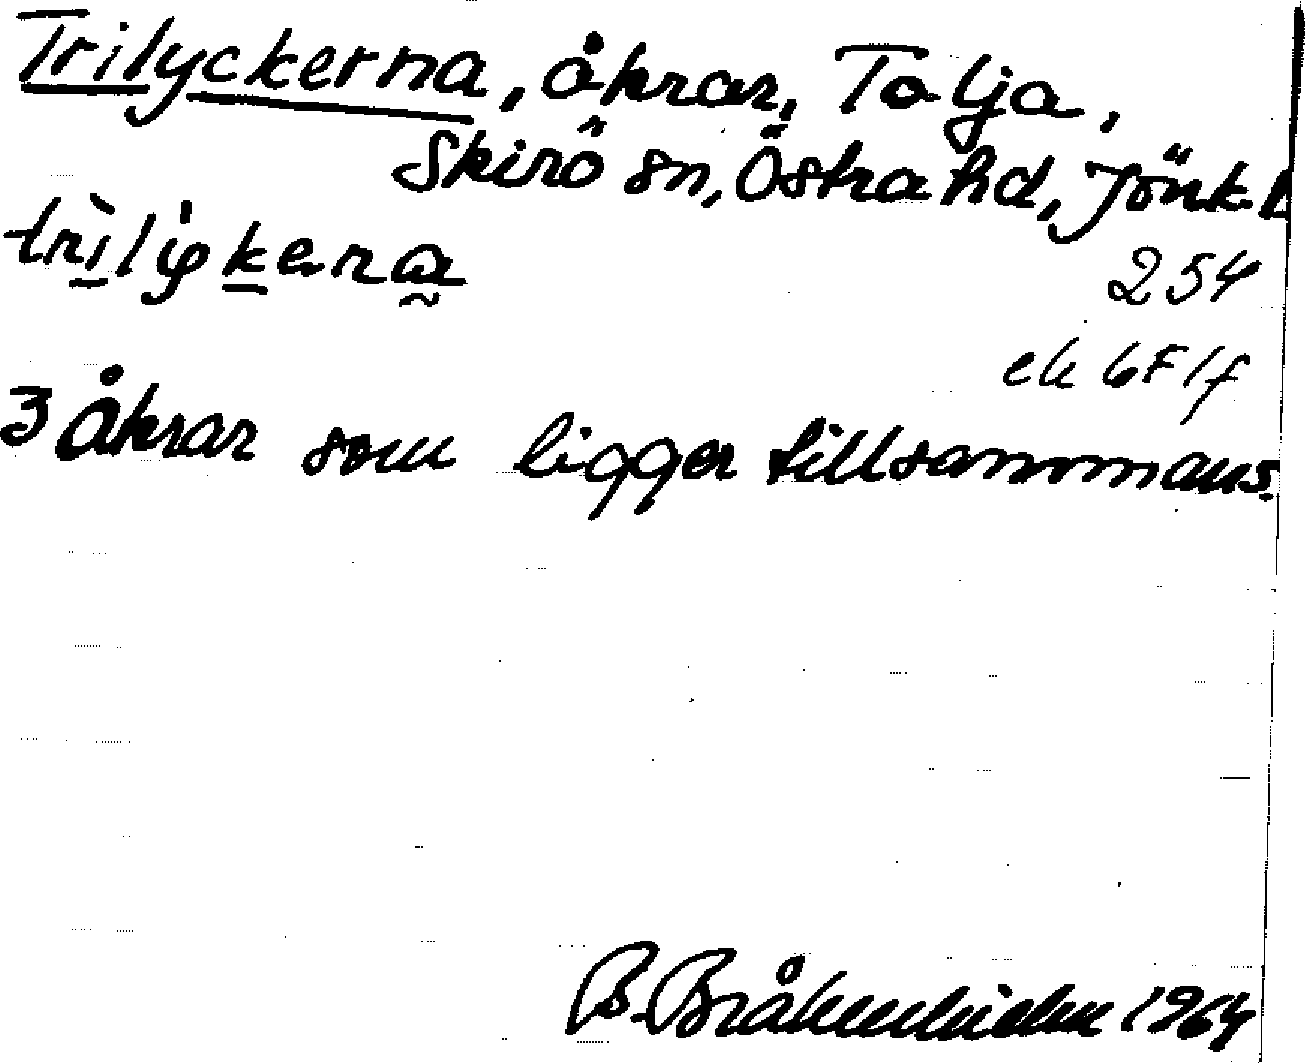 Trilyckerna, åkrar, Tolja,
Skirö sn, Östra hd, Jönk. L
trìlykena
254
ek 6F1f
3 åkrar som ligger tillsammans.
B. 1964